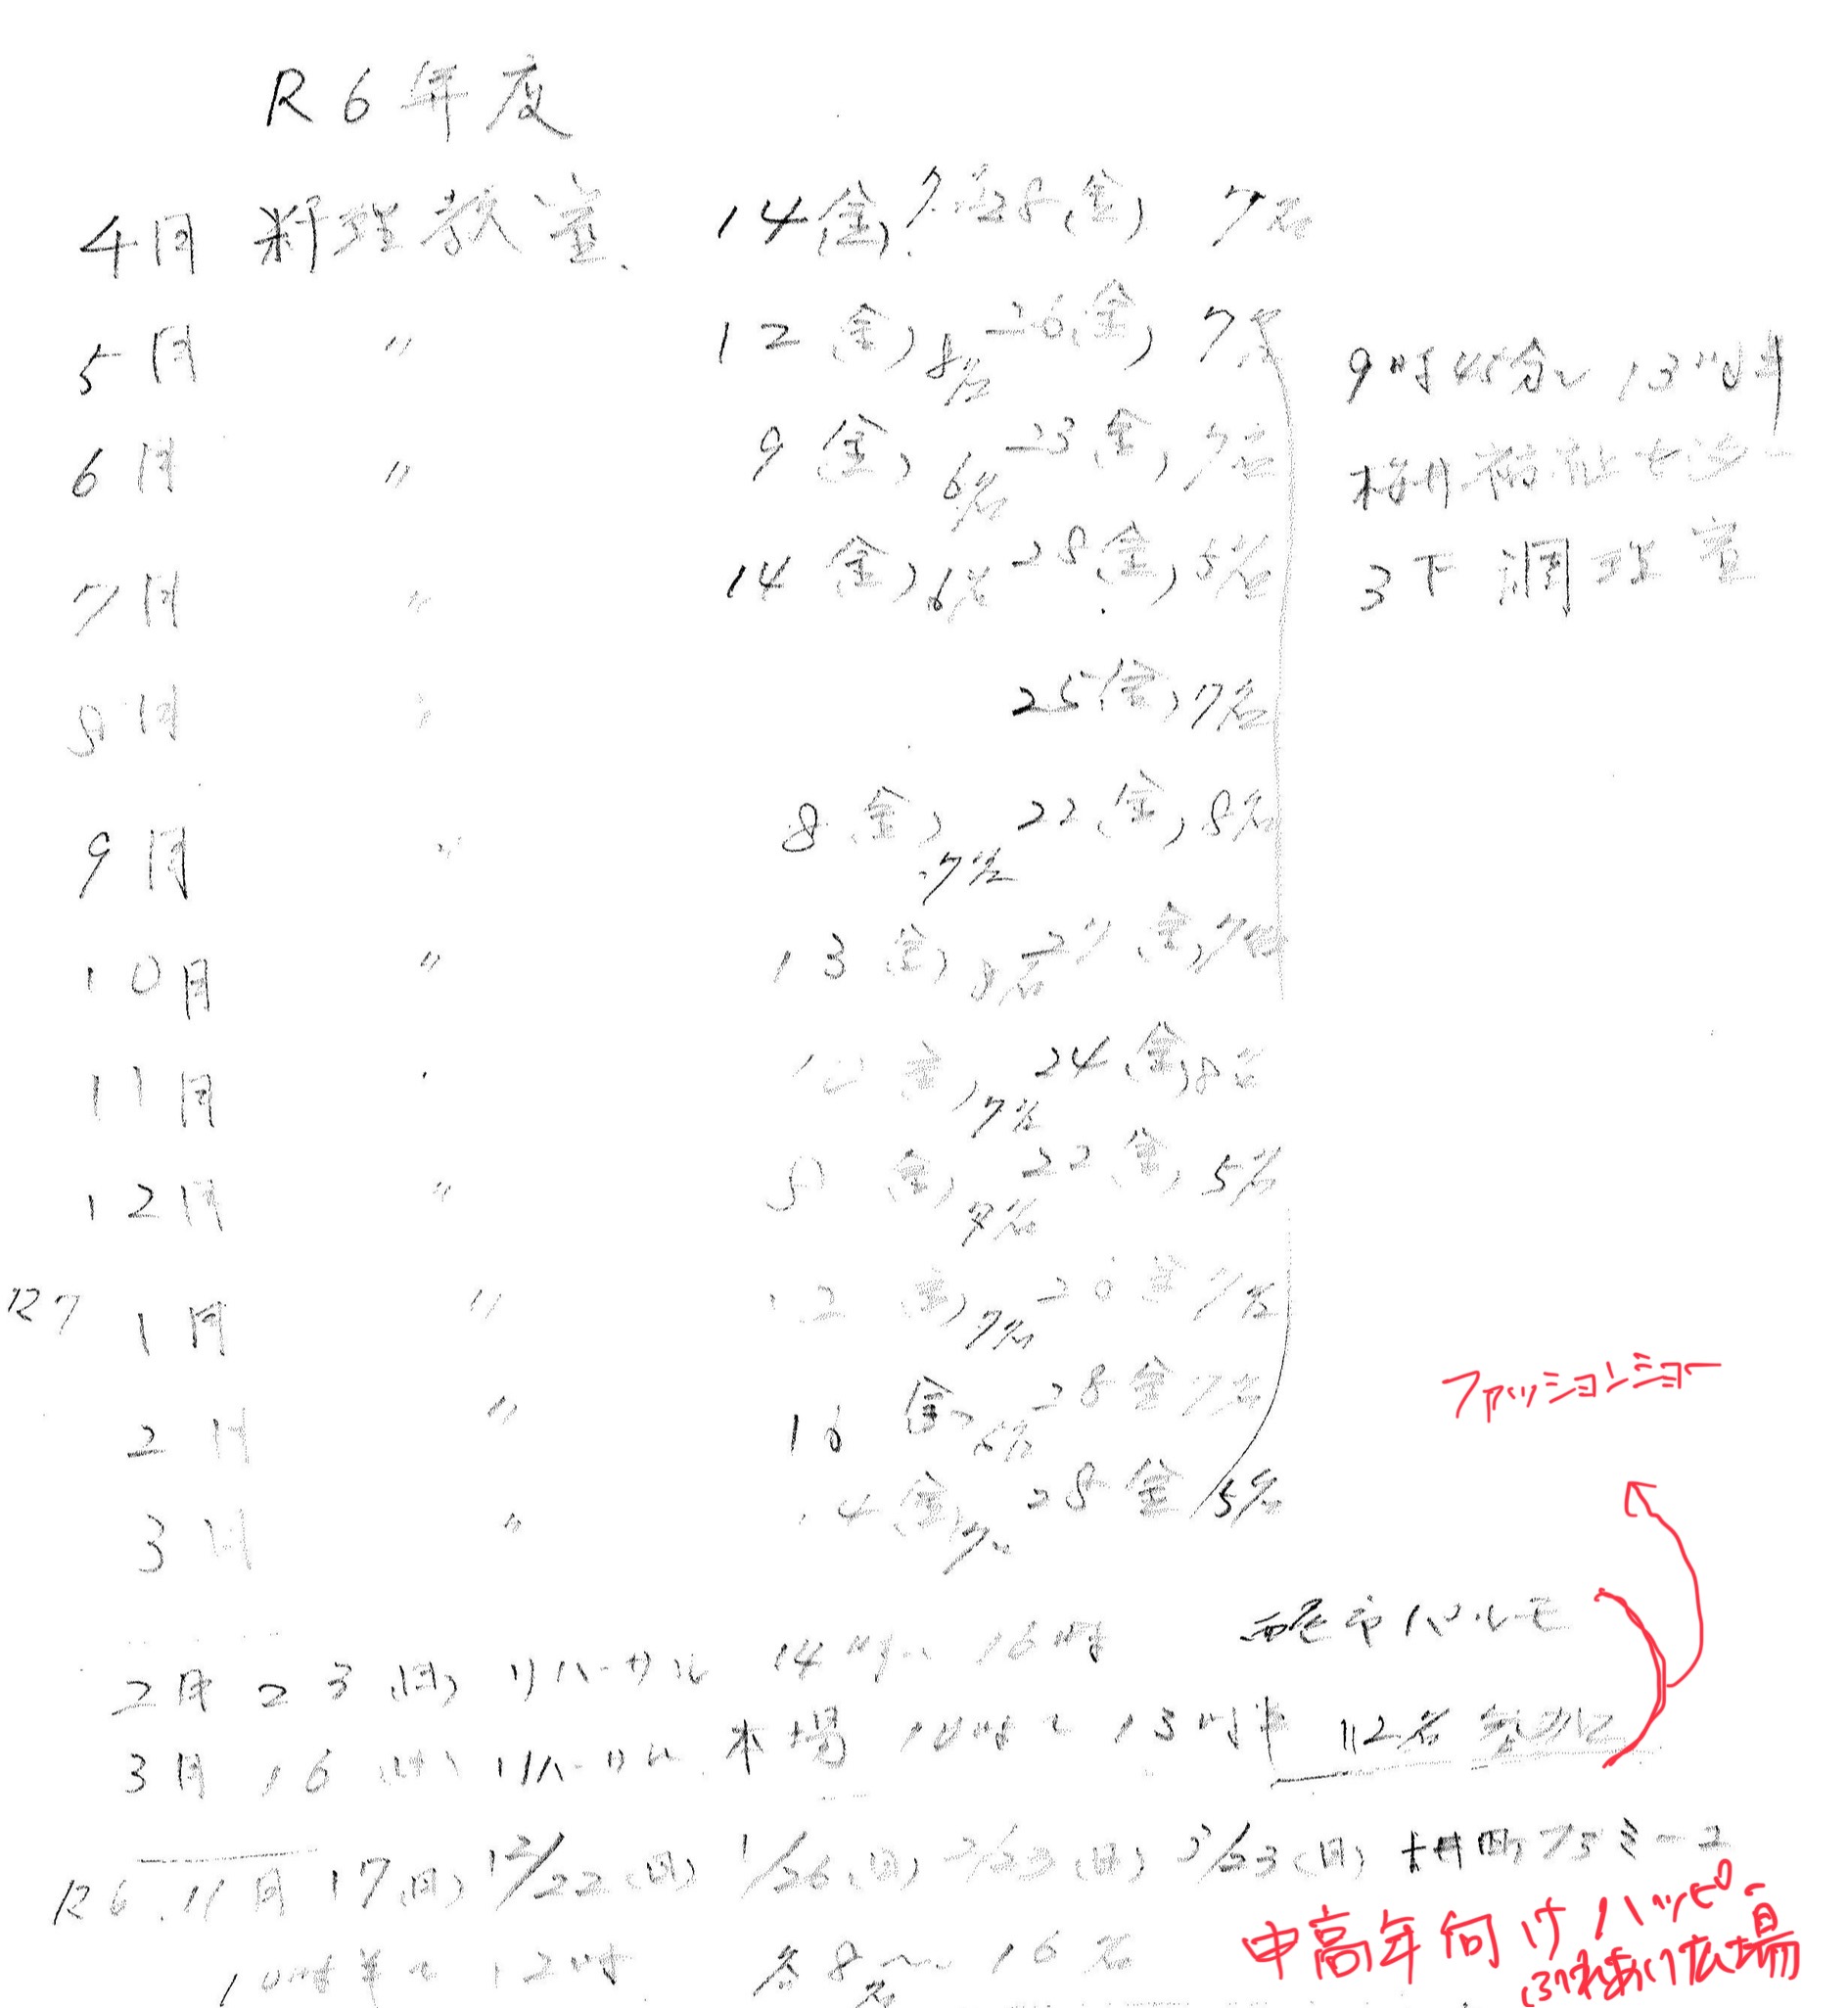 R6年度
4月 料理教室 14(金) 7名 28(金) 7名
5月 〃 12(金) 8名 26(金) 7名
9時45分〜13時半
6月 〃 9(金) 6名 23(金) 7名
桜井福祉センター
7月 〃 14(金) 6名 28(金) 5名
3F 調理室
8月 〃 25(金) 7名
9月 〃 8(金) 7名 22(金) 8名
10月 〃 13(金) 8名 27(金) 7名
11月 10(金) 7名 24(金) 8名
12月 〃 8(金) 22(金) 5名
R7 1月 〃 12(金) 7名 26金 7名
ファッションショー
2月 〃 16金 28金 7名
3月 〃 14(金) 28金 5名
西尾市パルモ
2月23(日) リハーサル 14時〜16時
3月16(日) リハーサル 本場 10時〜13時半 112名参加
R6.11月17(日) 12/22(日) 1/26(日) 2/23(日) 3/23(日) 桜井町
中高年向けハッピー
10時半〜12時 各8名〜16名
ふれあい広場